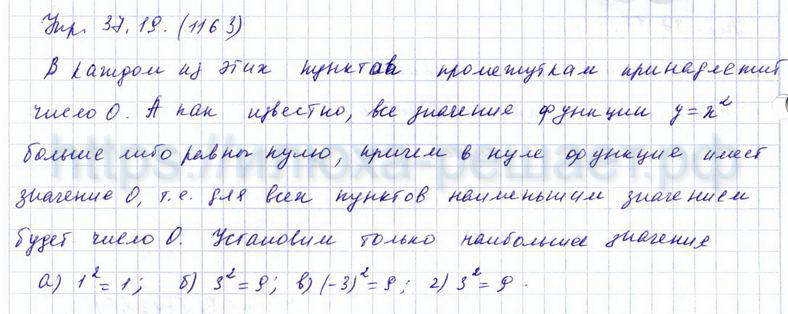 Упр. 37.19. (1163)
В каждом из этих пунктов промежуткам принадлежит
число 0. А как известно, все значение функции y = x²
больше либо равны нулю, причем в нуле функцие имеет
значение 0, т.е. для всех пунктов наименьшим значением
будет число 0. Установим только наибольшее значение
а) 1² = 1; б) 3² = 9; в) (-3)² = 9; г) 3² = 9.